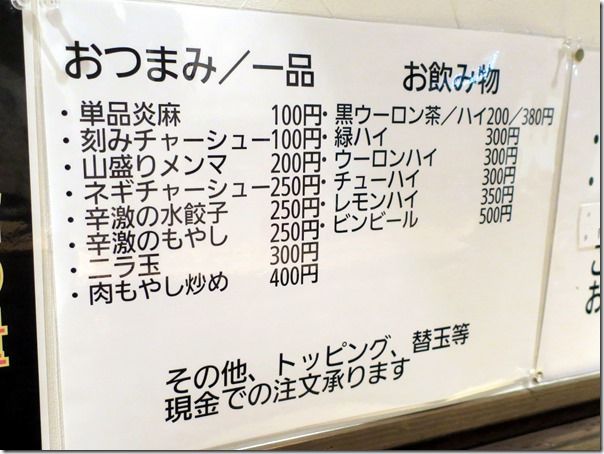 おつまみ／一品
・単品炎麻 100円
・刻みチャーシュー 100円
・山盛りメンマ 200円
・ネギチャーシュー 250円
・辛激の水餃子 250円
・辛激のもやし 250円
・ニラ玉 300円
・肉もやし炒め 400円
お飲み物
・黒ウーロン茶／ハイ 200／380円
・緑ハイ 300円
・ウーロンハイ 300円
・チューハイ 300円
・レモンハイ 350円
・ビンビール 500円
その他、トッピング、替玉等
現金での注文承ります